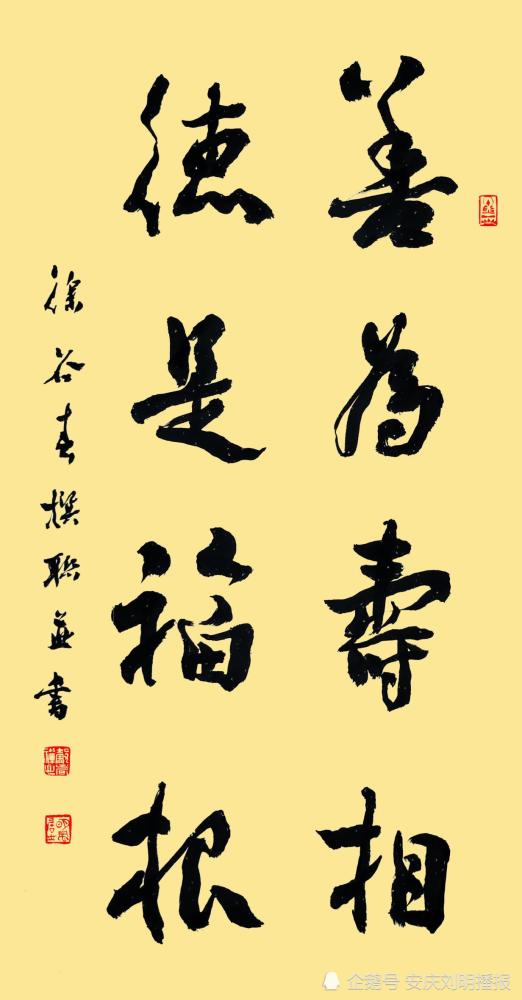 善為壽相
德是福根
徐谷春撰联並書
企鹅号 安庆刘明播报